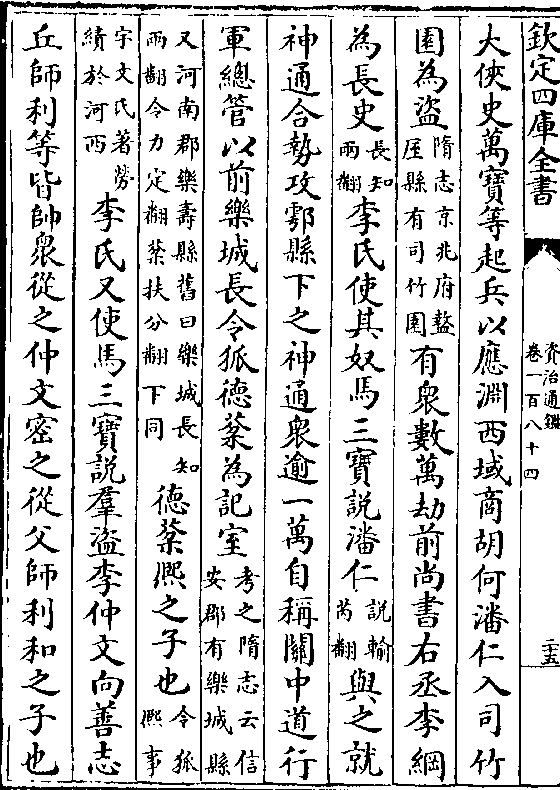 欽定四庫全書
資治通鑑
卷一百八十四
二十五
大俠史萬寶等起兵以應淵西域商胡何潘仁入司竹
園為盜隋志京兆府盩
厔縣有司竹園有衆數萬劫前尚書右丞李綱
為長史長知
兩翻李氏使其奴馬三寶說潘仁說輸
芮翻與之就
神通合勢攻鄠縣下之神通衆逾一萬自稱關中道行
軍總管以前樂城長令狐德棻為記室考之隋志云信
安郡有樂城縣
又河南郡樂壽縣舊曰樂城長知
兩翻令力定翻棻扶分翻下同德棻熙之子也令狐
熙事
宇文氏著勞
績於河西李氏又使馬三寶說羣盜李仲文向善志
丘師利等皆帥衆從之仲文密之從父師利和之子也